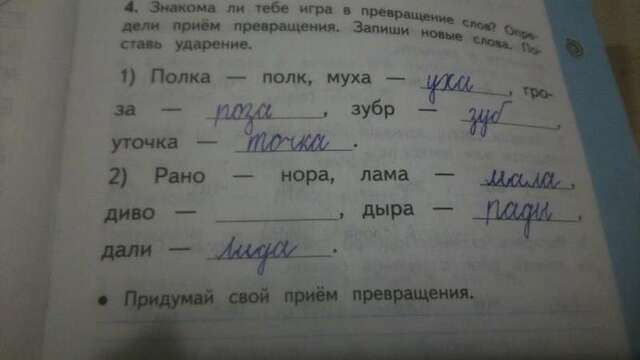 4. Знакома ли тебе игра в превращение слов? Опре-
дели приём превращения. Запиши новые слова. По-
ставь ударение.
1) Полка — полк, муха — уха, гро-
за — роза, зубр — зуб,
уточка — точка.
2) Рано — нора, лама — мала,
диво — , дыра — рады,
дали — лида.
• Придумай свой приём превращения.